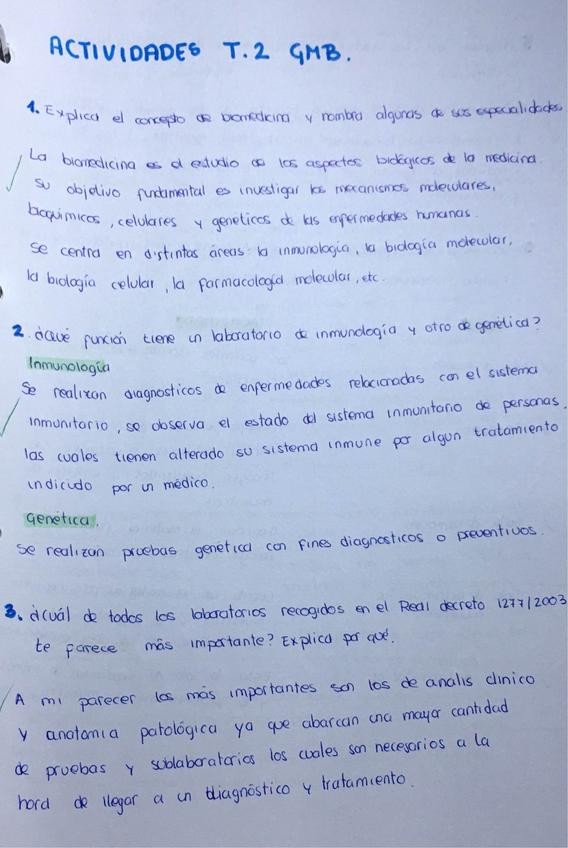 ACTIVIDADES T.2 GMB.
1. Explica el concepto de biomedicina y nombra algunas de sus especialidades
La biomedicina es el estudio de los aspectos biológicos de la medicina.
Su objetivo fundamental es investigar los mecanismos moleculares,
bioquimicos, celulares y geneticos de las enfermedades humanas.
Se centra en distintas áreas: la inmunología, la biología molecular,
la biología celular, la farmacología molecular, etc.
2. ¿Qué función tiene un laboratorio de inmunología y otro de genética?
Inmunología
Se realizan diagnosticos de enfermedades relacionadas con el sistema
inmunitario, se observa el estado del sistema inmunitario de personas.
las cuales tienen alterado su sistema inmune por algun tratamiento
indicido por un médico.
Genética.
Se realizan pruebas genética con fines diagnosticos o preventivos.
3. ¿cuál de todos los laboratorios recogidos en el Real decreto 1277/2003
te parece más importante? Explica por qué.
A mi parecer los más importantes son los de analis clinico
y anatomia patológica ya que abarcan una mayor cantidad
de pruebas y sublaboratorios los cuales son necesarios a la
hora de llegar a un diagnóstico y tratamiento.